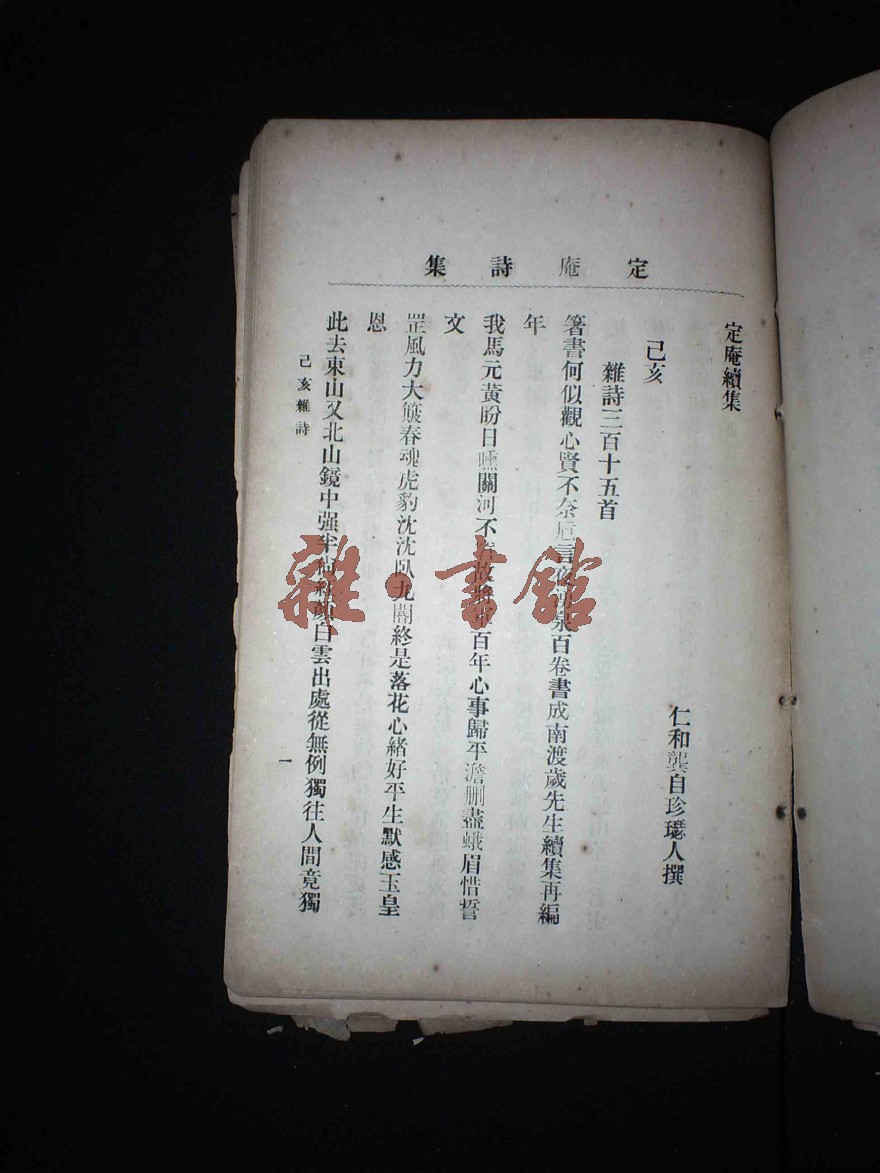 定庵詩集
定庵續集
己亥
仁和龔自珍璱人撰
雜詩三百十五首
箸書何似觀心賢不奈卮言夜泉百卷書成南渡歲先生續集再編
年
我馬元黃盼日曛關河不故將百年心事歸平澹刪盡蛾眉惜誓
文
罡風力大簸春魂虎豹沈沈臥九閽終是落花心緒好平生默感玉皇
恩
此去東山又北山鏡中强半尚紅顏白雲出處從無例獨往人間竟獨
己亥雜詩 一
雜·書館